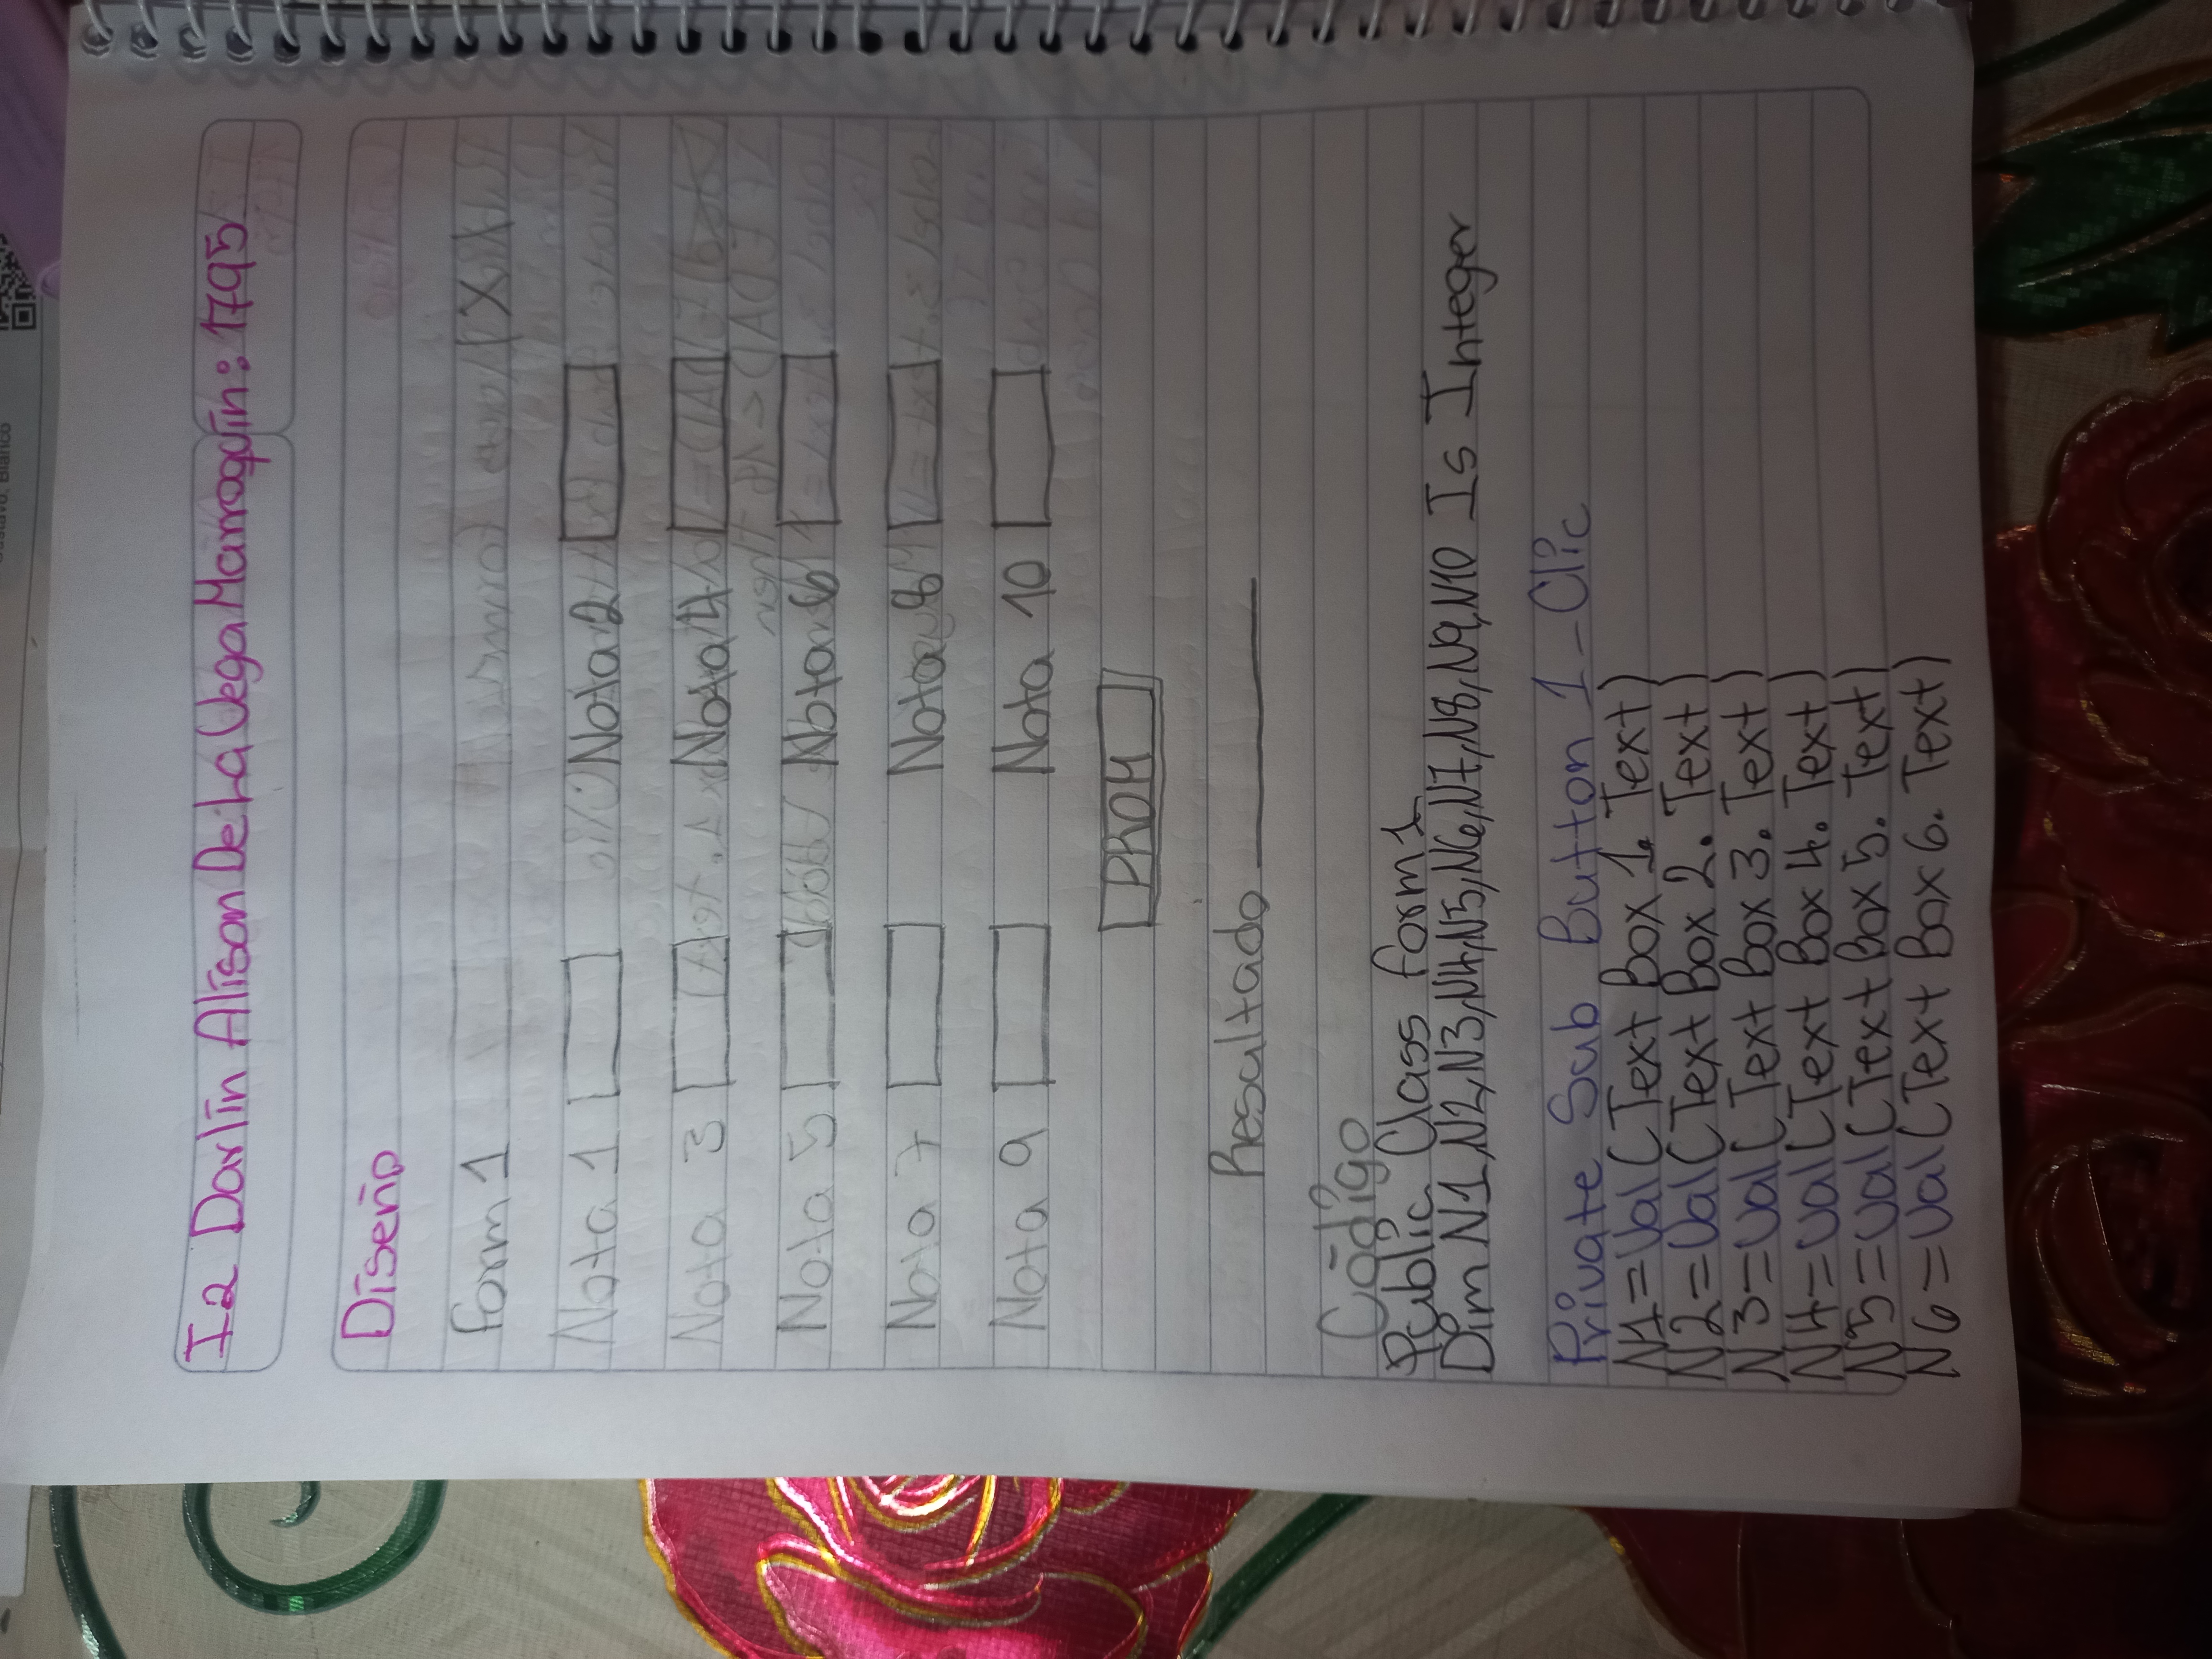 I2 Darlin Alison De La Vega Marroquín: 1795
Diseño
form 1 X
Nota 1 Nota 2
Nota 3 Nota 4
Nota 5 Nota 6
Nota 7 Nota 8
Nota 9 Nota 10
PROM
Resultado
Código
Public Class form 1
Dim N1,N2,N3,N4,N5,N6,N7,N8,N9,N10 Is Integer
Private Sub Button 1-Clic
N1=Val(Text Box 1. Text)
N2=Val(Text Box 2. Text)
N3=Val(Text Box 3. Text)
N4=Val(Text Box 4. Text)
N5=Val(Text Box 5. Text)
N6=Val(Text Box 6. Text)